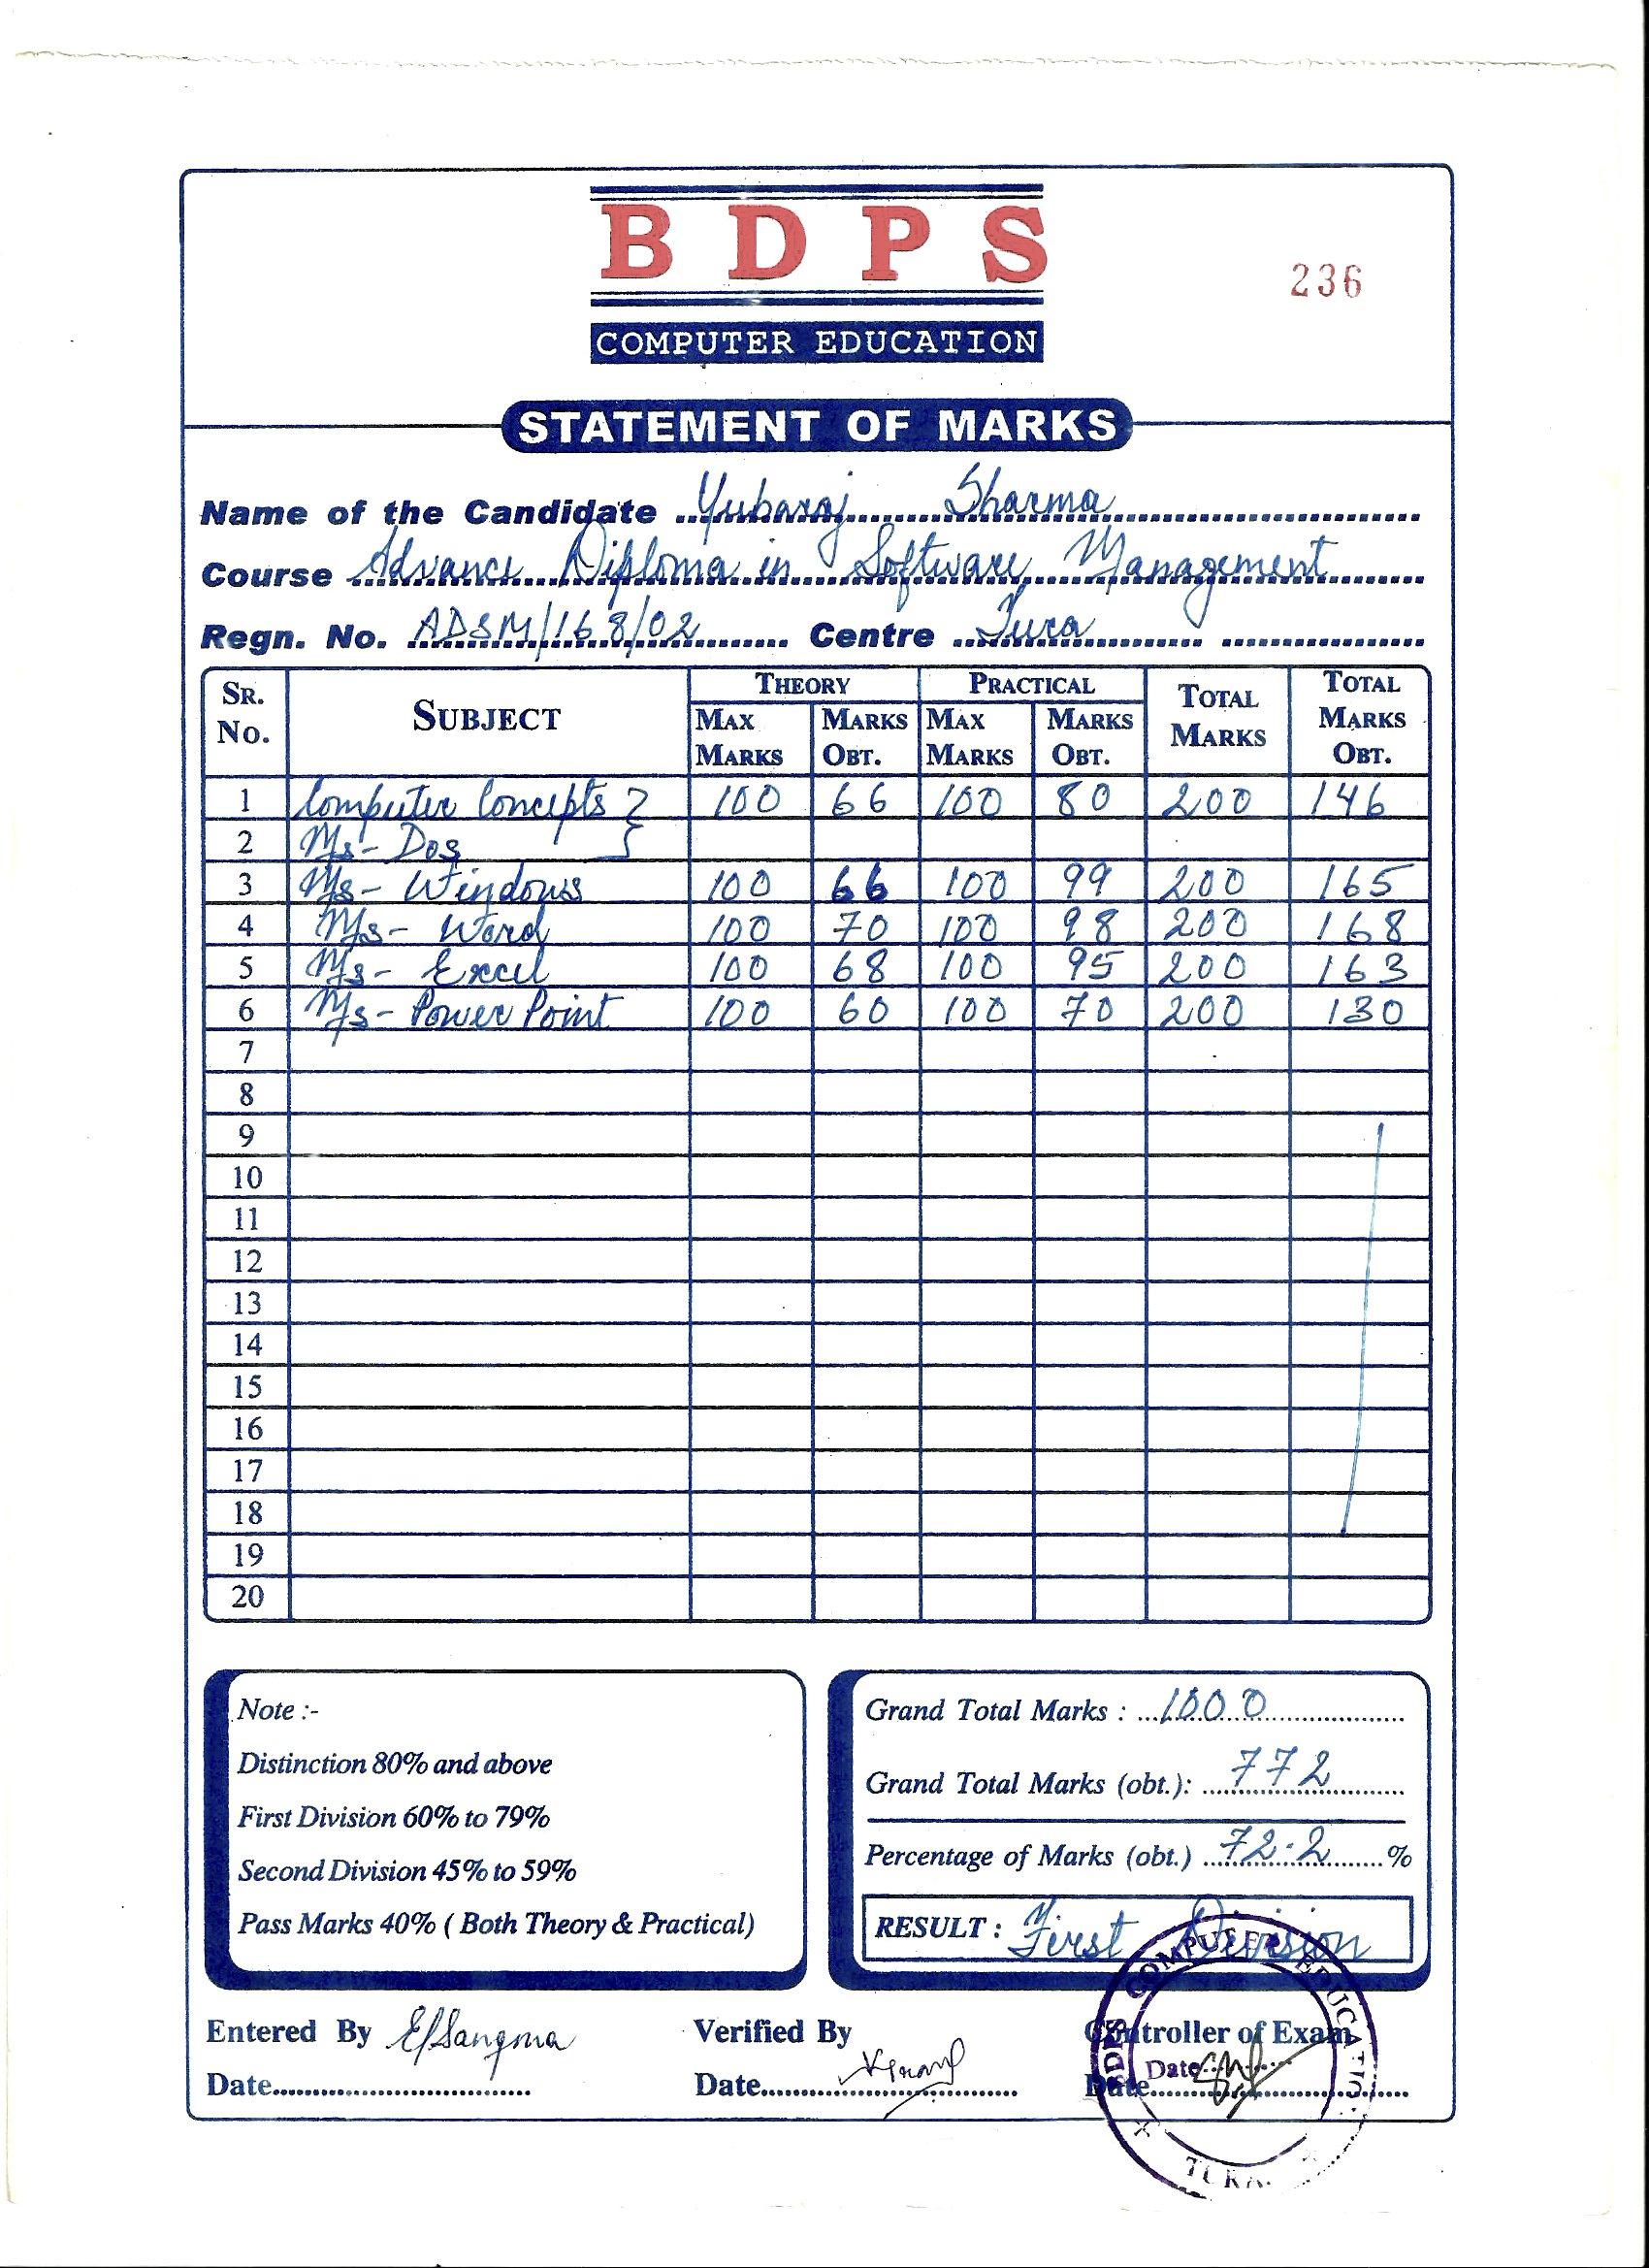 B D P S
236
COMPUTER EDUCATION
STATEMENT OF MARKS
Name of the Candidate Yubaraj Sharma
Course Advance Diploma in Software Management
Regn. No. ADSM/168/02 Centre Tura
SR. No. SUBJECT THEORY PRACTICAL TOTAL MARKS TOTAL MARKS OBT.
MAX MARKS MARKS OBT. MAX MARKS MARKS OBT.
1 Computer Concepts } 100 66 100 80 200 146
2 Ms- Dos
3 Ms- Windows 100 66 100 99 200 165
4 Ms- Word 100 70 100 98 200 168
5 Ms- Excel 100 68 100 95 200 163
6 Ms- Power Point 100 60 100 70 200 130
7
8
9
10
11
12
13
14
15
16
17
18
19
20
Note :-
Distinction 80% and above
First Division 60% to 79%
Second Division 45% to 59%
Pass Marks 40% ( Both Theory & Practical)
Grand Total Marks : 1000
Grand Total Marks (obt.): 772
Percentage of Marks (obt.) 72.2 %
RESULT : First Division
Entered By E/Sangma
Verified By
Controller of Exam
Date
Date
Date
Date
BDPS COMPUTER EDUCATION
TURA